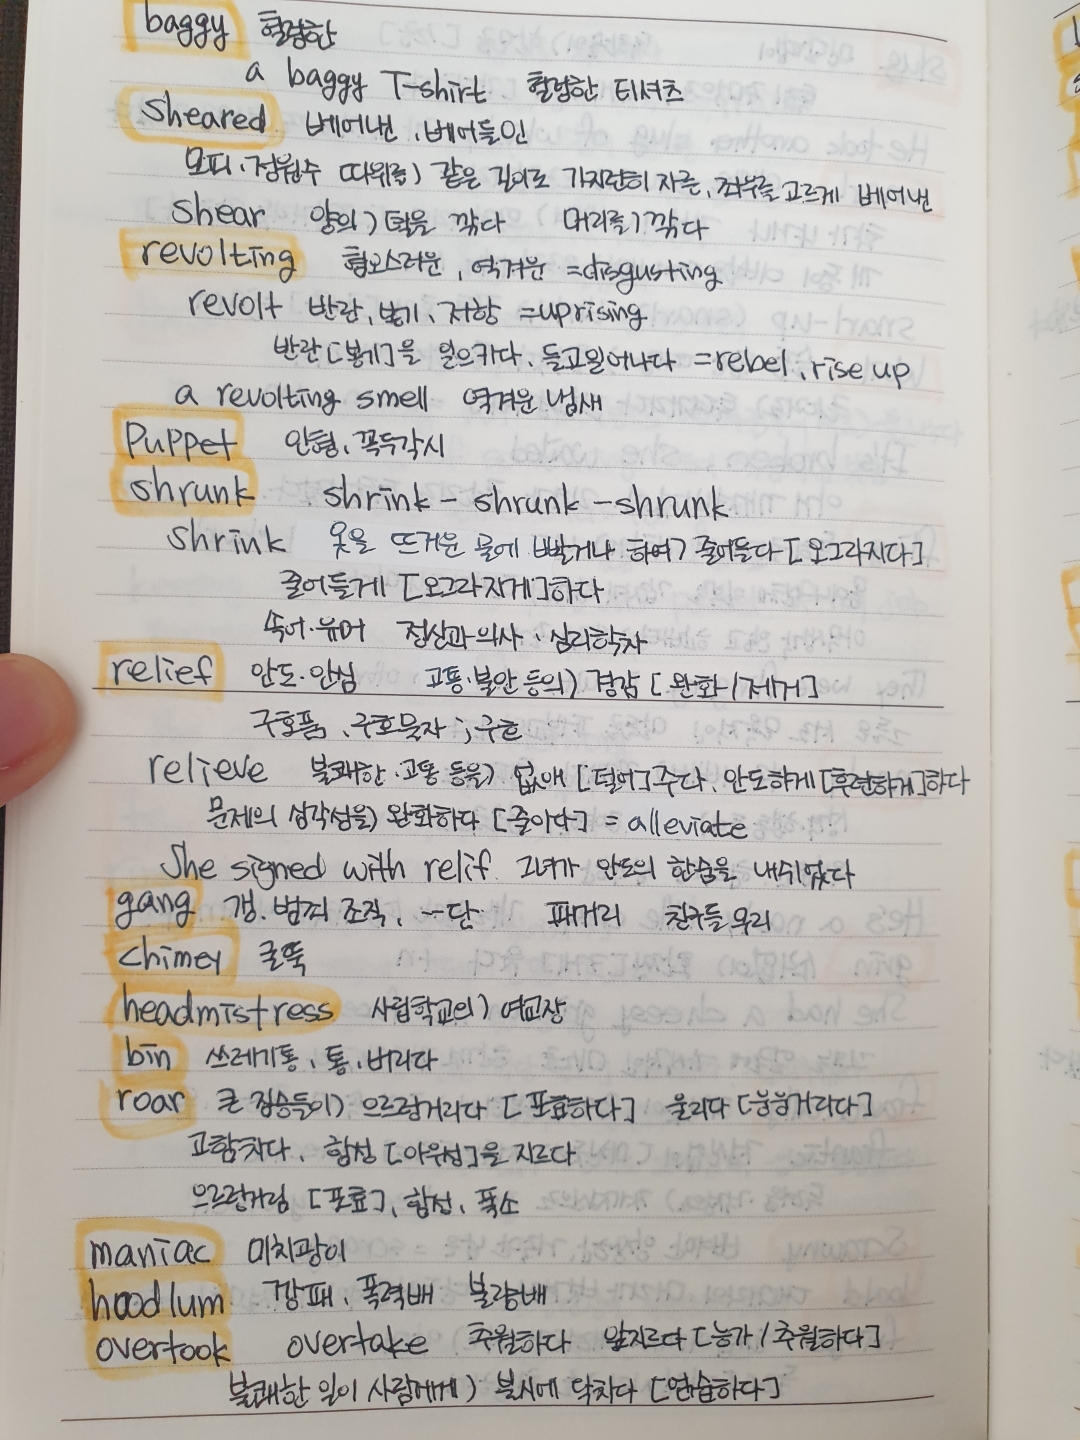 baggy 헐렁한
a baggy T-shirt 헐렁한 티셔츠
sheared 베어낸, 베어들인
모피·정원수 따위를) 같은 길이로 가지런히 자른, 좌우를 고르게 베어낸
shear 양의) 털을 깎다 머리를) 깎다
revolting 혐오스러운, 역겨운 =disgusting
revolt 반란, 봉기, 저항 =uprising
반란[봉기]을 일으키다, 들고일어나다 =rebel, rise up
a revolting smell 역겨운 냄새
puppet 인형, 꼭두각시
shrunk shrink - shrunk - shrunk
shrink 옷을 뜨거운 물에 빨거나 하여) 줄어들다 [오그라지다]
줄어들게 [오그라지게]하다
속어·유머 정신과 의사·심리학자
relief 안도·안심 고통·불안 등의) 경감 [완화/제거]
구호품, 구호물자; 구호
relieve 불쾌한·고통 등을) 없애 [덜어]주다, 안도하게 [후련하게]하다
문제의 심각성을) 완화하다 [줄이다] = alleviate
She signed with relif 그녀가 안도의 한숨을 내쉬었다
gang 갱, 범죄 조직, -단 패거리 친구들 무리
chimey 굴뚝
headmistress 사립학교의) 여교장
bin 쓰레기통, 통, 버리다
roar 큰 짐승들이) 으르렁거리다 [포효하다] 울리다 [웅웅거리다]
고함치다, 함성 [아우성]을 지르다
으르렁거림 [포효], 함성, 폭소
maniac 미치광이
hoodlum 깡패, 폭력배 불량배
overtook overtake 추월하다 앞지르다 [능가/추월하다]
불쾌한 일이 사람에게) 불시에 닥치다 [엄습하다]